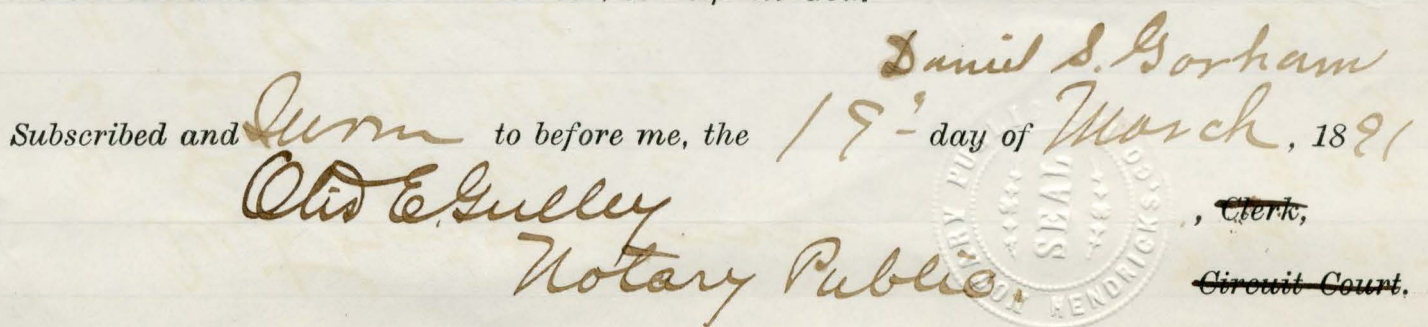 Daniel S. Gorham
Subscribed and Sworn to before me, the 19 day of March, 1891
Otis E. Gulley, Clerk,
Notary Public. Circuit Court.
SEAL
HENDRICKS CO.